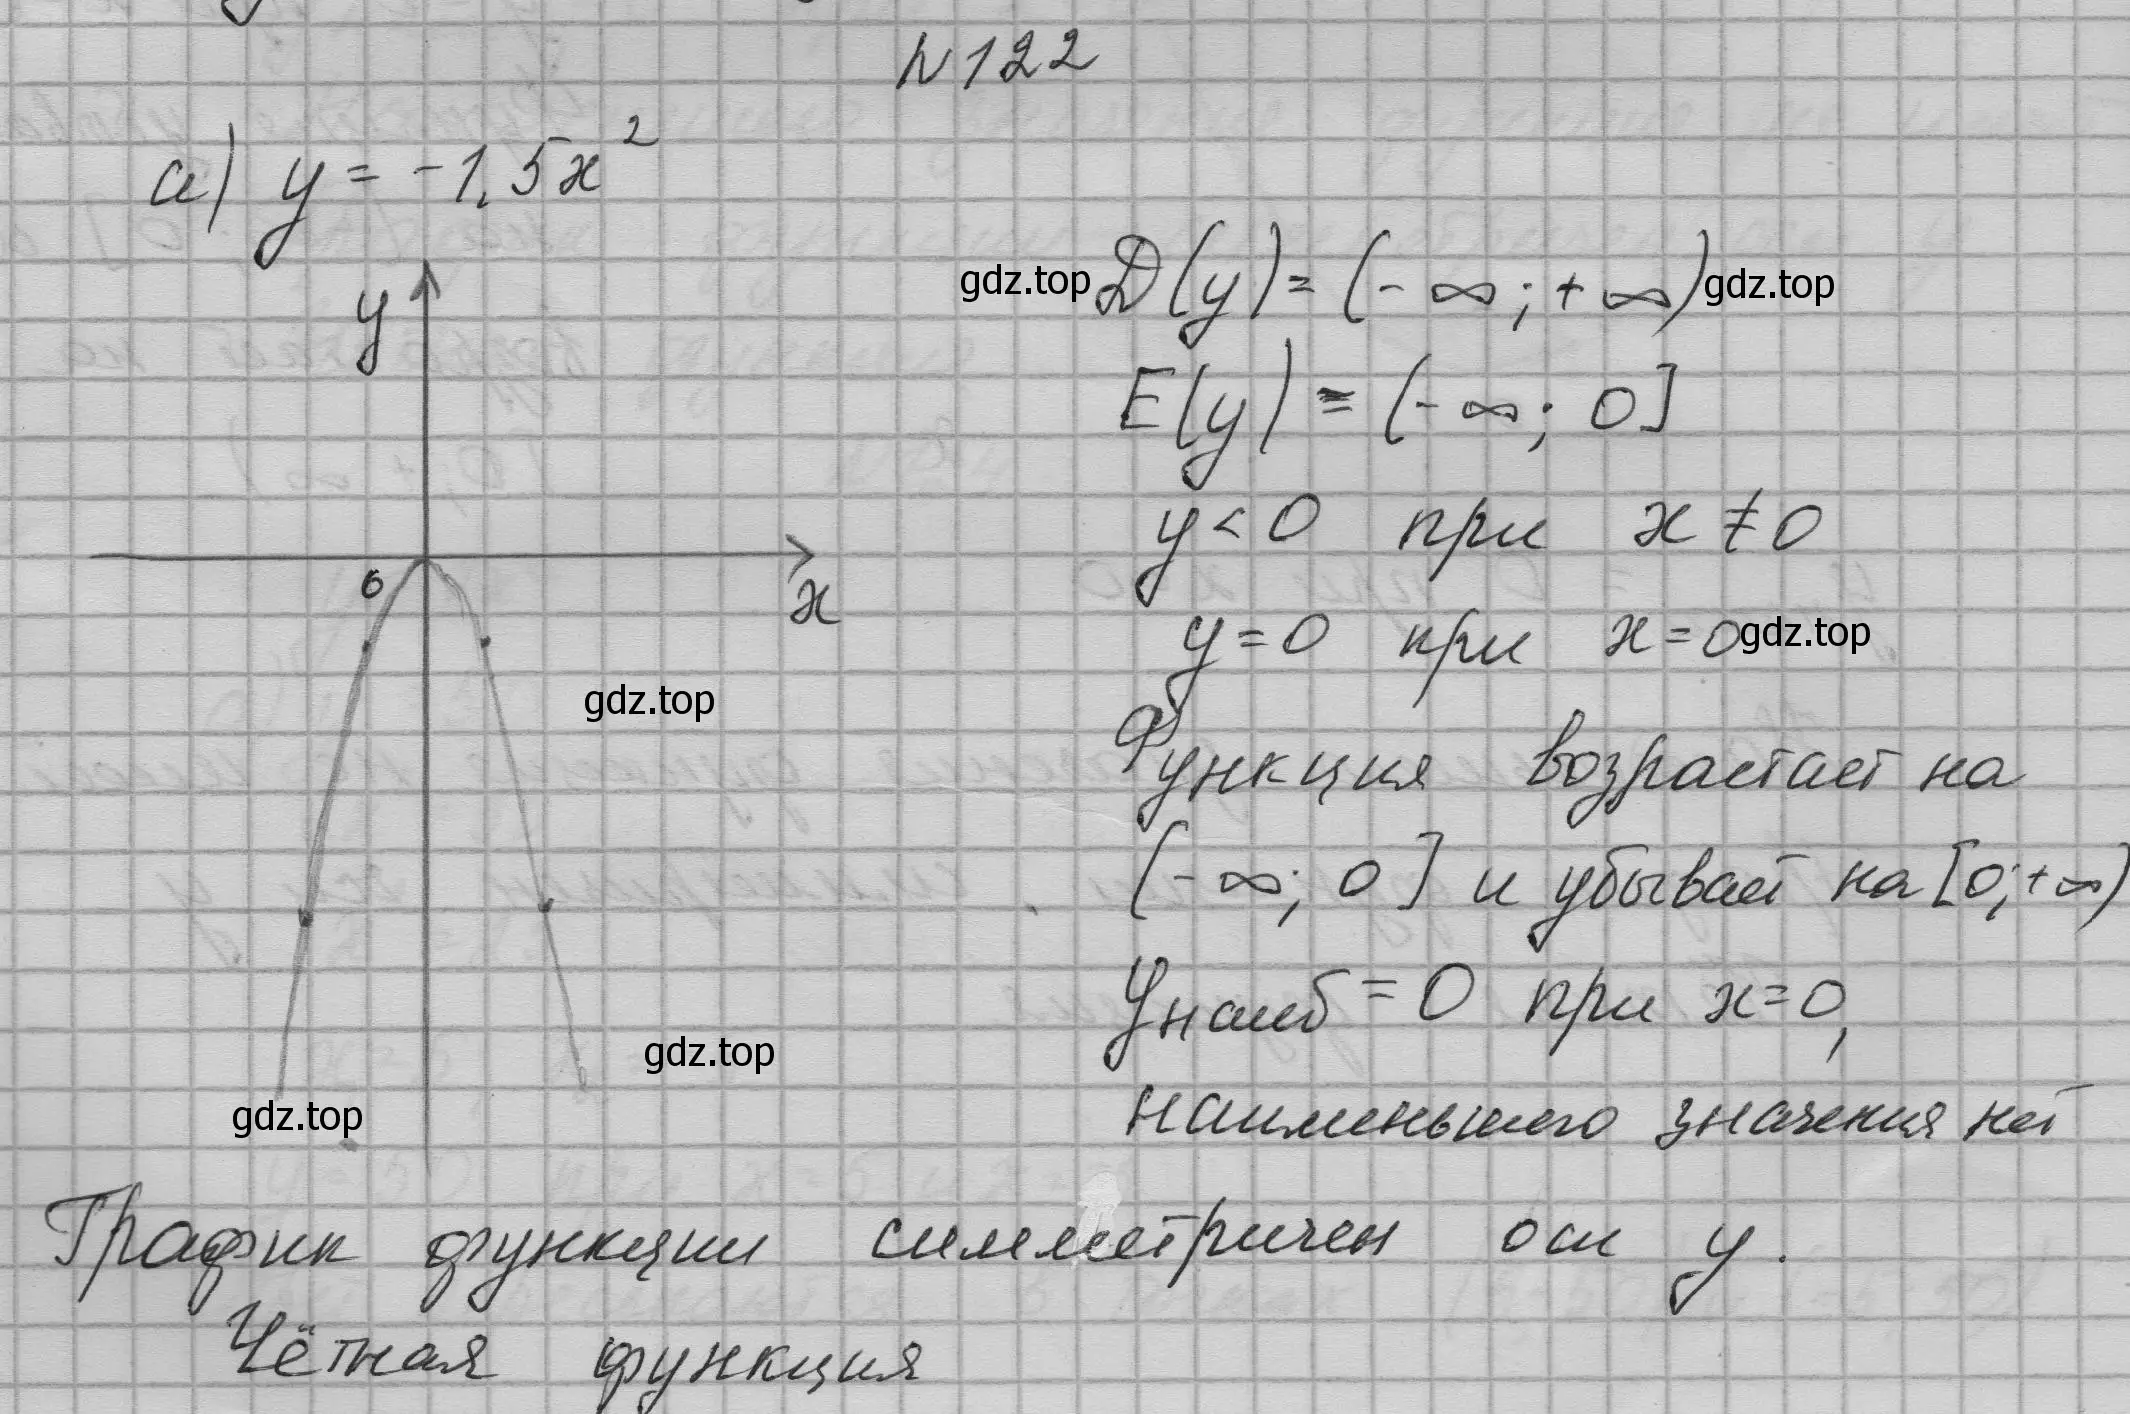 N 122
а) y = -1,5x²
gdz.top D(y) = (-∞; +∞) gdz.top
y
E(y) = (-∞; 0]
y < 0 при x ≠ 0
0
x
y = 0 при x = 0 gdz.top
gdz.top
Функция возрастает на
(-∞; 0] и убывает на [0; +∞)
yнаиб = 0 при x = 0,
gdz.top
gdz.top
наименьшего значения нет
График функции симметричен оси y.
Чётная функция